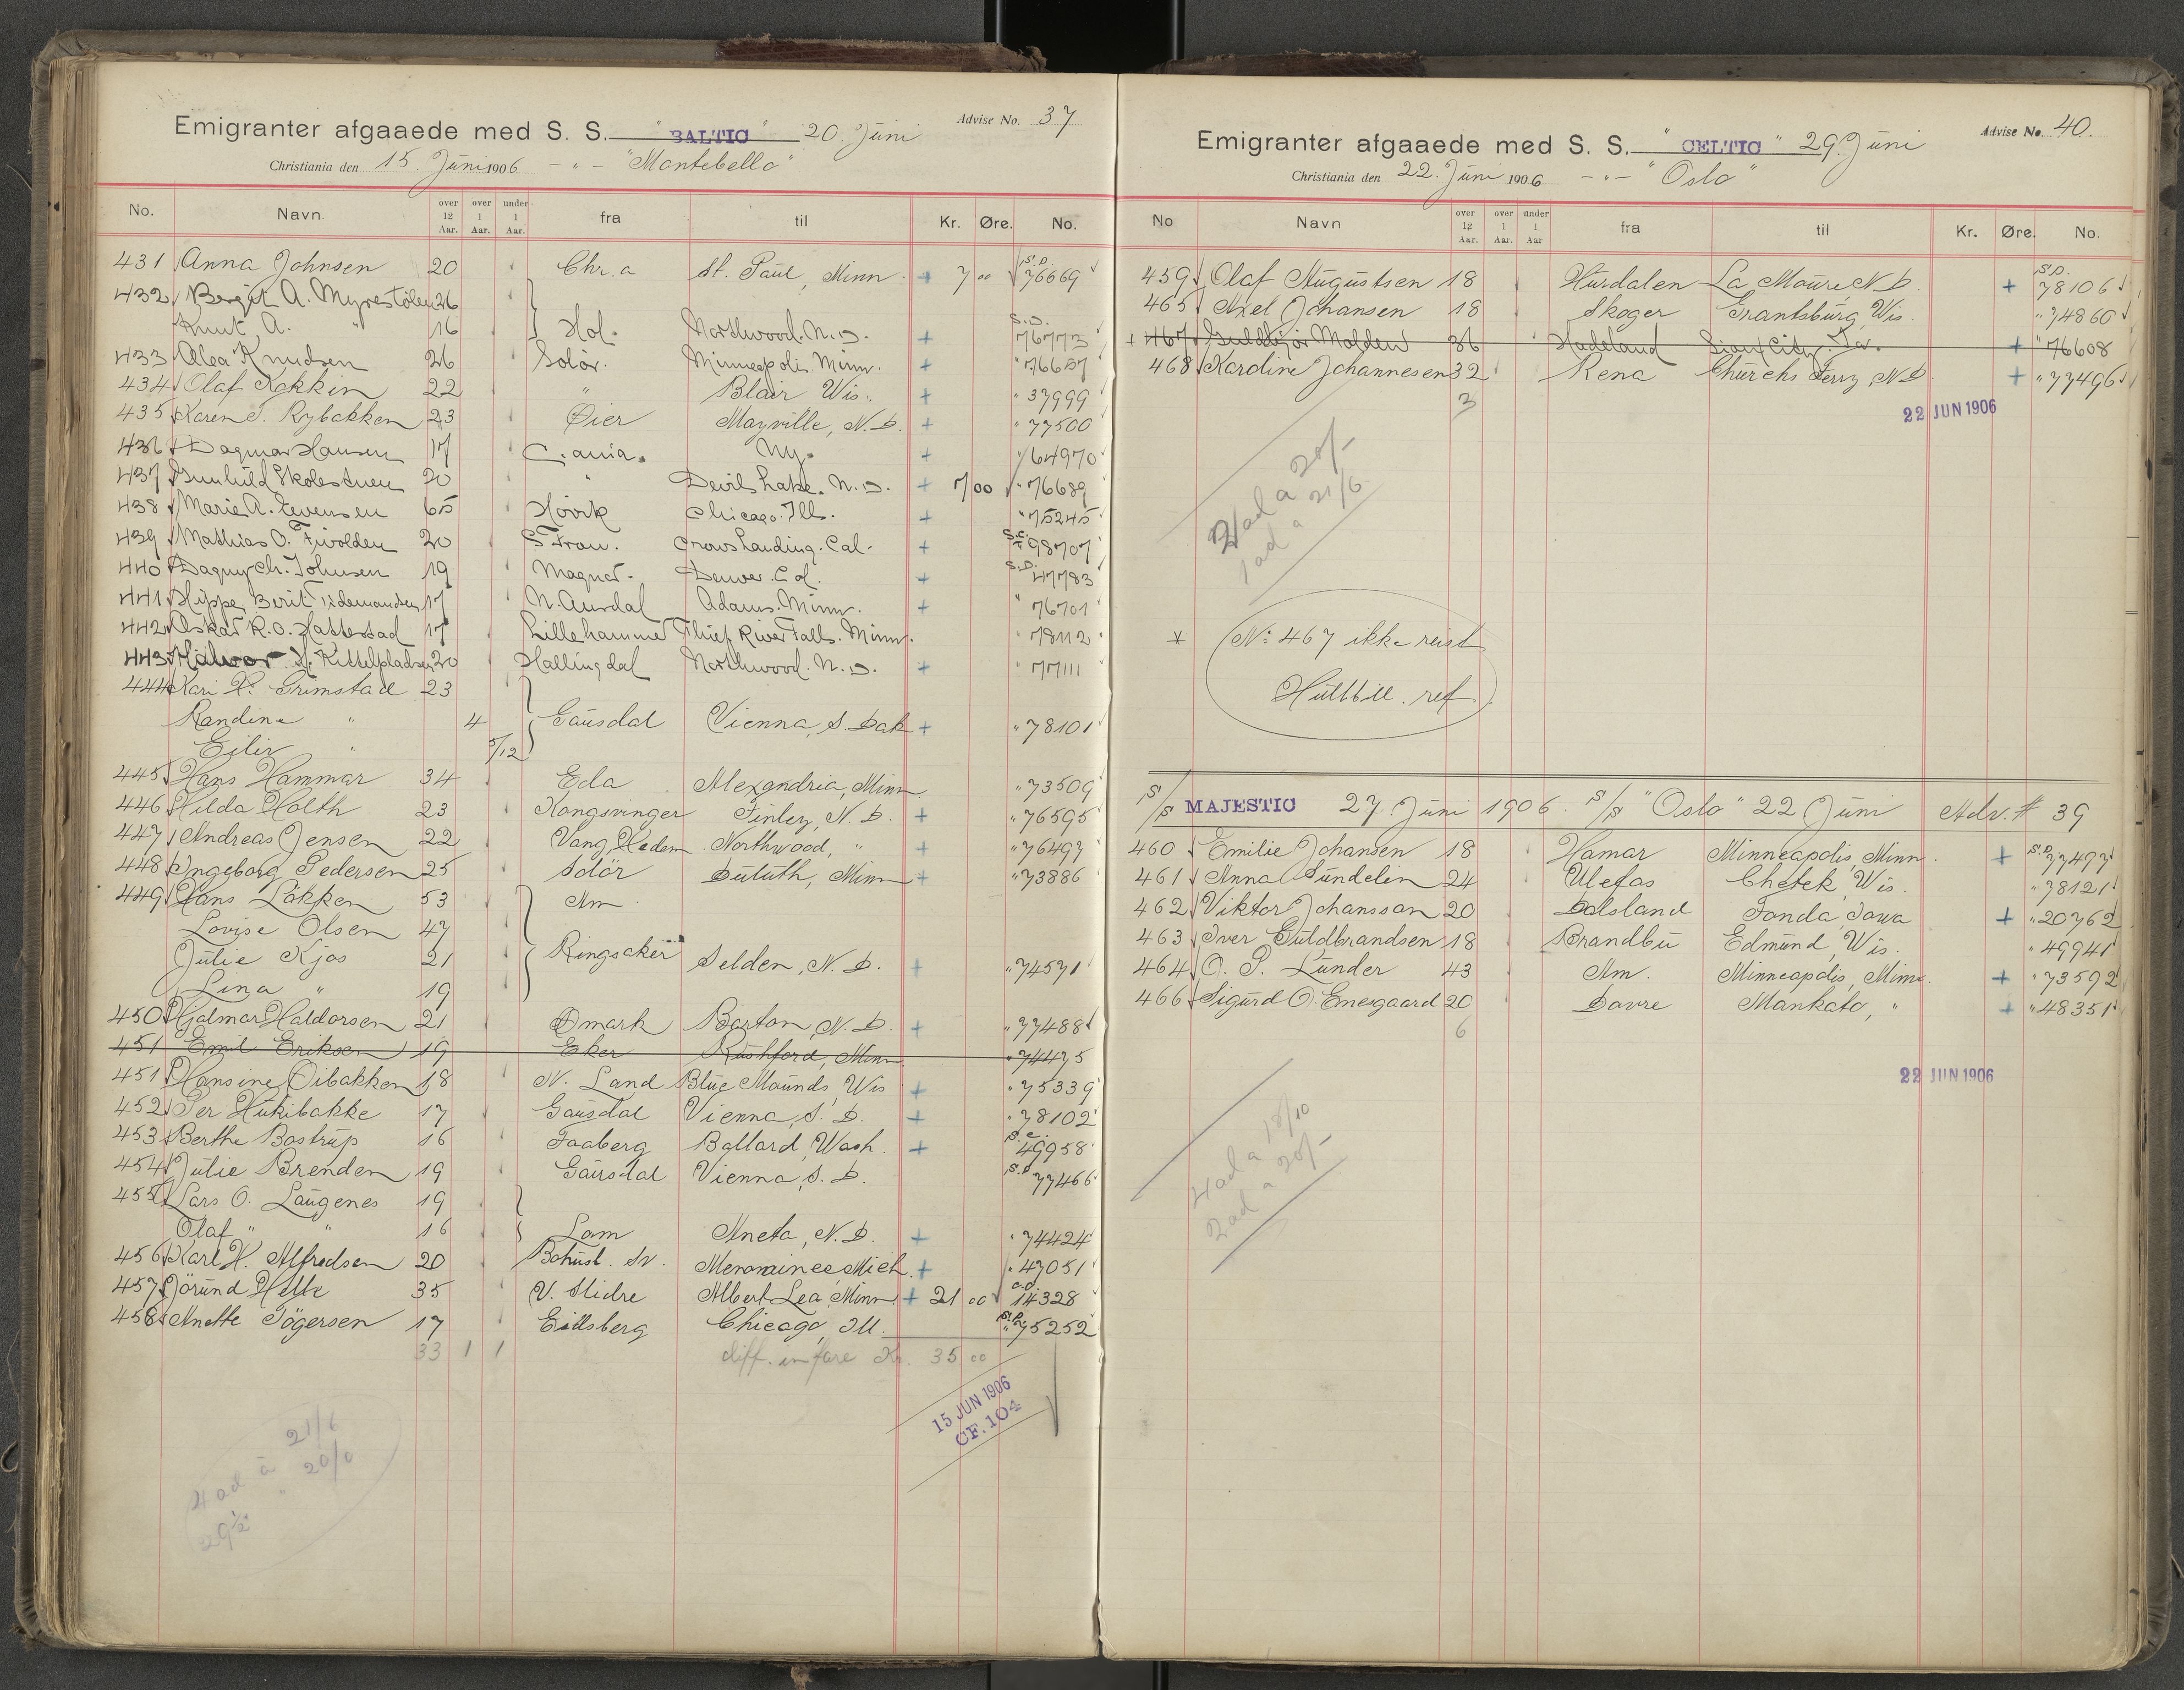 Emigranter afgaaede med S. S. "BALTIC" 20. Juni Advise No. 37
Christiania den 15. Juni 1906 - " - "Montebello"
No. Navn. over 12 Aar. over 1 Aar. under 1 Aar. fra til Kr. Øre. No.
431 Anna Johnsen 20 Chr.a St. Paul, Minn. + 7 00 S.D. 76669
432 Bergit A. Myrestölen 26
Knut A. " 16 Hol. Northwood. N.D. + S.D. 76773
433 Alea Knudsen 26 Solör. Minneapolis Minn. + " 76657
434 Olaf Kokkin 22 " Blair Wis. + " 37999
435 Karen S. Rybakken 23 Öier Mayville, N.D. + " 77500
436 Dagmar Hansen 17 C.ania. Ny. + " 64970
437 Gunhild Skolestuen 20 " Devils Lake. N.D. + 7/00 " 76689
438 Marie A. Evensen 65 Hövik Chicago. Ills. + " 75245
439 Mathias O. Fivolden 20 S. Fron. Crows Landing. Cal. + S.C. 98707
440 Dagny Ch. Johnsen 19 Magnor. Denver. Col. + S.D. 47783
441 Hippe, Berit Tidemandsen 17 N. Aurdal Adams. Minn. + " 76701
442 Oskar R. O. Hattestad 17 Lillehammer Thief River Falls. Minn. " 78112
443 Halvor H. Kittelpladsen 20 Hallingdal Northwood. N.D. + " 77111
444 Kari H. Grimstad 23
Randine " 4 Gausdal Vienna, S. Dak + " 78101
Eiliv " 5/12
445 Hans Hammar 34 Eda Alexandria, Minn " 73509
446 Hilda Holth 23 Kongsvinger Finley, N.D. + " 76595
447 Andreas Jensen 22 Vang, Hedem. Northwood, " + " 76497
448 Ingeborg Pedersen 25 Solör Duluth, Minn + " 73886
449 Hans Lökken 53 Am.
Lovise Olsen 47
Julie Kjos 21 Ringsaker Selden, N.D. + " 74571
Lina " 19
450 Hjalmar Haldorsen 21 Ömark Barton, N.D. + " 77488
451 Emil Eriksen 19 Eker Rushford, Minn " 74475
451 Hansine Öibakken 18 N. Land Blue Mounds, Wis + " 75339
452 Per Hukibakke 17 Gausdal Vienna, S.D. + " 78102
453 Berthe Bostrup 16 Faaberg Ballard, Wash. + S.C. 49958
454 Julie Brenden 19 Gausdal Vienna, S.D. S.D. 77466
455 Lars O. Laugenes 19
Olaf " " 16 Lom Aneta, N.D. + " 74424
456 Karl H. Alfredsen 20 Bohusl. Sv. Menominee, Mich. + " 47051
457 Jörund Helle 35 V. Slidre Albert Lea, Minn. + 21 00 C.D. 14328
458 Anette Tögersen 17 Eidsberg Chicago, Ill. S.D. " 75252
33 1 1 diff. in fare Kr. 35 00
15 JUN 1906
CF. 104
4 ad à 21/6
29½ " 20/0
Emigranter afgaaede med S. S. "CELTIC" 29. Juni Advise No. 40.
Christiania den 22. Juni 1906 - " - "Oslo"
No Navn over 12 Aar. over 1 Aar. under 1 Aar fra til Kr. Øre. No.
459 Olaf Augustsen 18 Hurdalen La Moure, N.D. + S.D. 78106
465 Axel Johansen 18 Skoger Grantsburg, Wis. " 74860
+ 467 Guldbjör Molden 36 Hadeland Sioux City. Ia. + " 76608
468 Karoline Johannesen 32 Rena Churchs Ferry, N.D. + " 77496
3
22 JUN 1906
2 ad a 20/-
1 ad a 21/6
x No 467 ikke reist
Hultbill. ref.
S/S MAJESTIC 27. Juni 1906. S/S "Oslo" 22 Juni Adv. # 39
460 Emilie Johansen 18 Hamar Minneapolis, Minn. + S.D. 77497
461 Anna Sundelin 24 Ulefos Chetek, Wis. " 78121
462 Viktor Johansson 20 Dalsland Fonda, Iowa + " 20762
463 Iver Guldbrandsen 18 Brandbu Edmund, Wis. " 49941
464 O. P. Lunder 43 Am. Minneapolis, Minn. + " 73592
466 Sigurd O. Enesgaard 20 Dovre Mankato, " + " 48351
6
22 JUN 1906
4 ad a 18/10
2 ad a 20/-